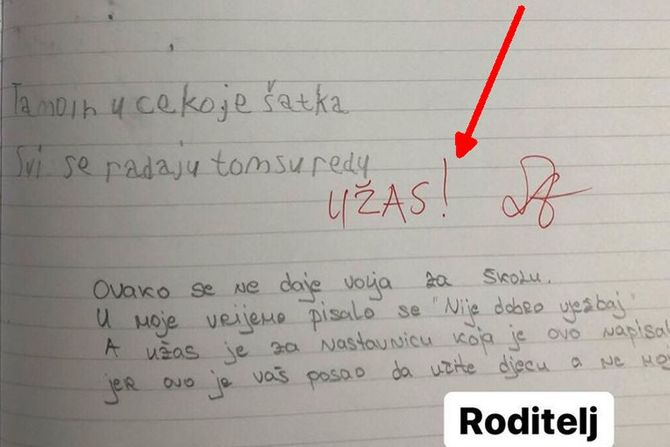 Tamoih u cekoje šatka
Svi se radaju tomsuredy
UŽAS!
Ovako se ne daje volja za školu.
U moje vrijeme pisalo se "Nije dobro vježbaj"
A užas je za nastavnicu koja je ovo napisal
jer ovo je vaš posao da učite djecu a ne
Roditelj